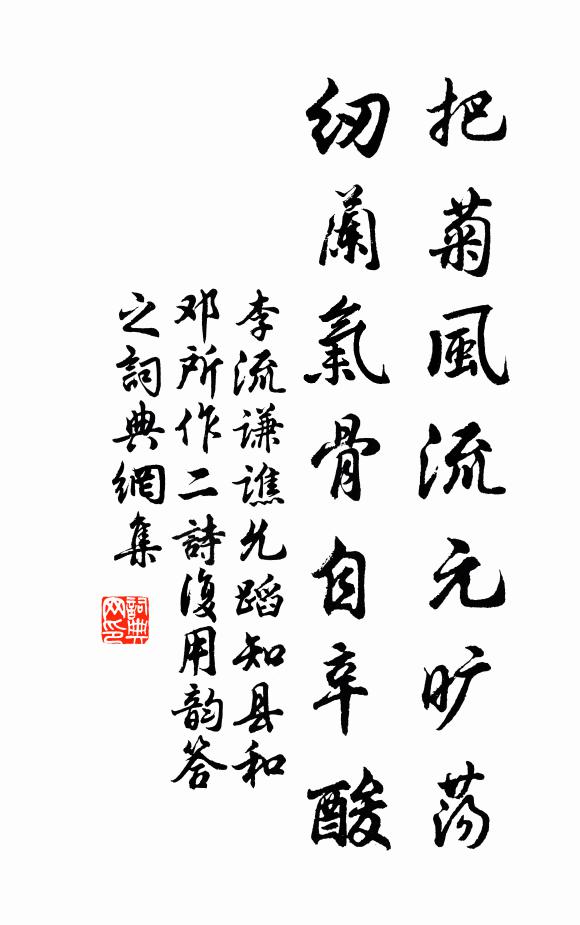 把菊風流元旷荡
纫蘭氣骨自辛酸
李流谦谯允蹈知县和
邓所作二詩復用韵答
之詞典網集
詞典
网印